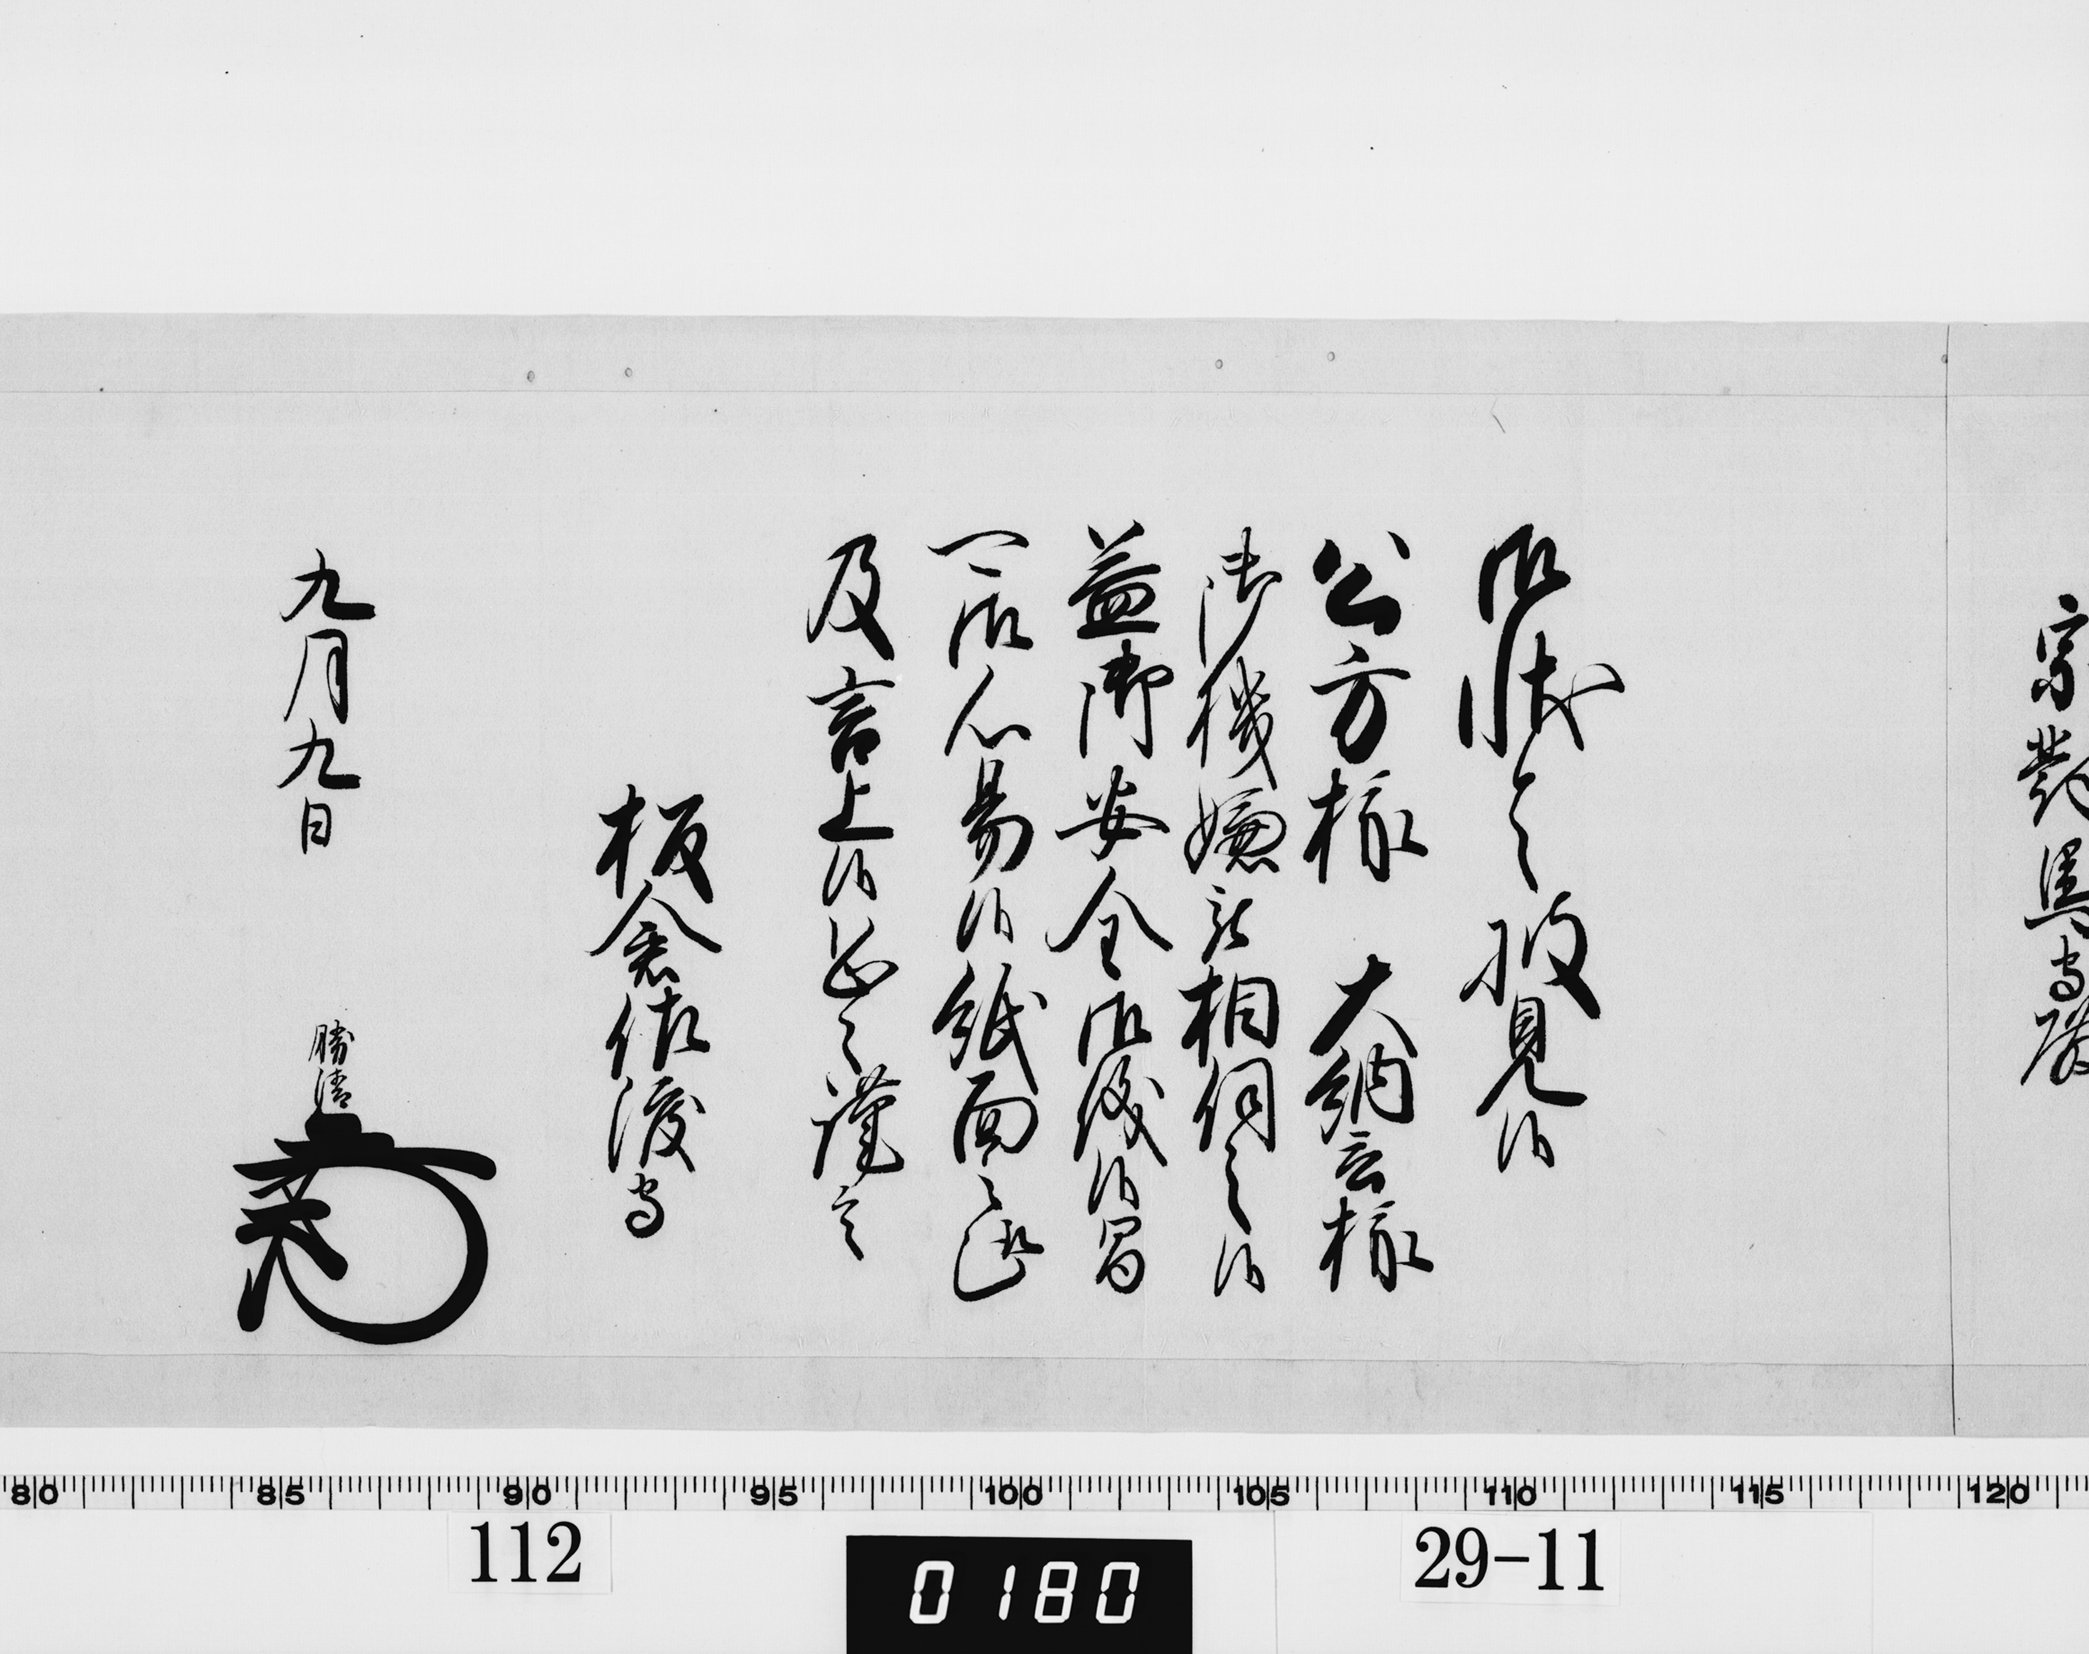 宗對馬守殿
御状令披見候
公方様 大納言様
御機嫌被相伺之候
益御安全御儀候間
可御心易候紙面之趣
及言上候恐々謹言
板倉佐渡守
九月九日 勝清
80 85 90 95 100 105 110 115 120
112 0180 29-11